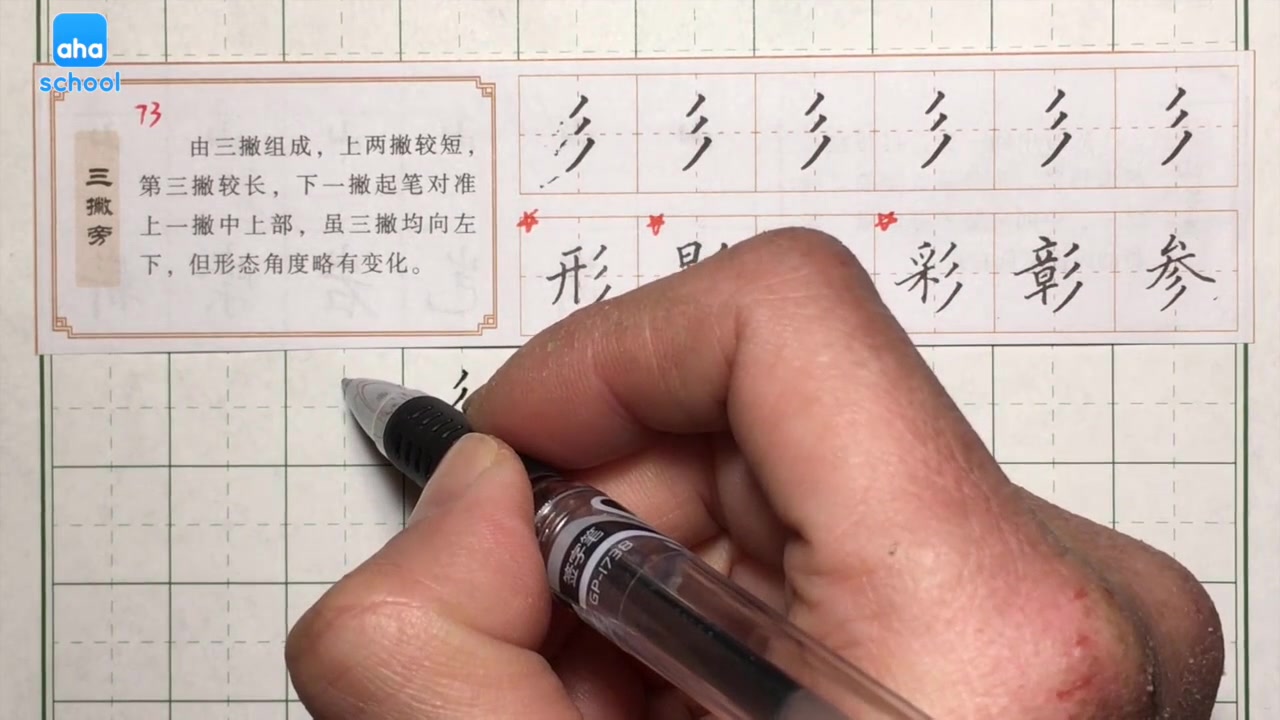 aha
school
73
三撇旁
由三撇组成，上两撇较短，
第三撇较长，下一撇起笔对准
上一撇中上部，虽三撇均向左
下，但形态角度略有变化。
彡 彡 彡 彡 彡 彡
形 彩 彰 参
彡
签字笔
GP-1738